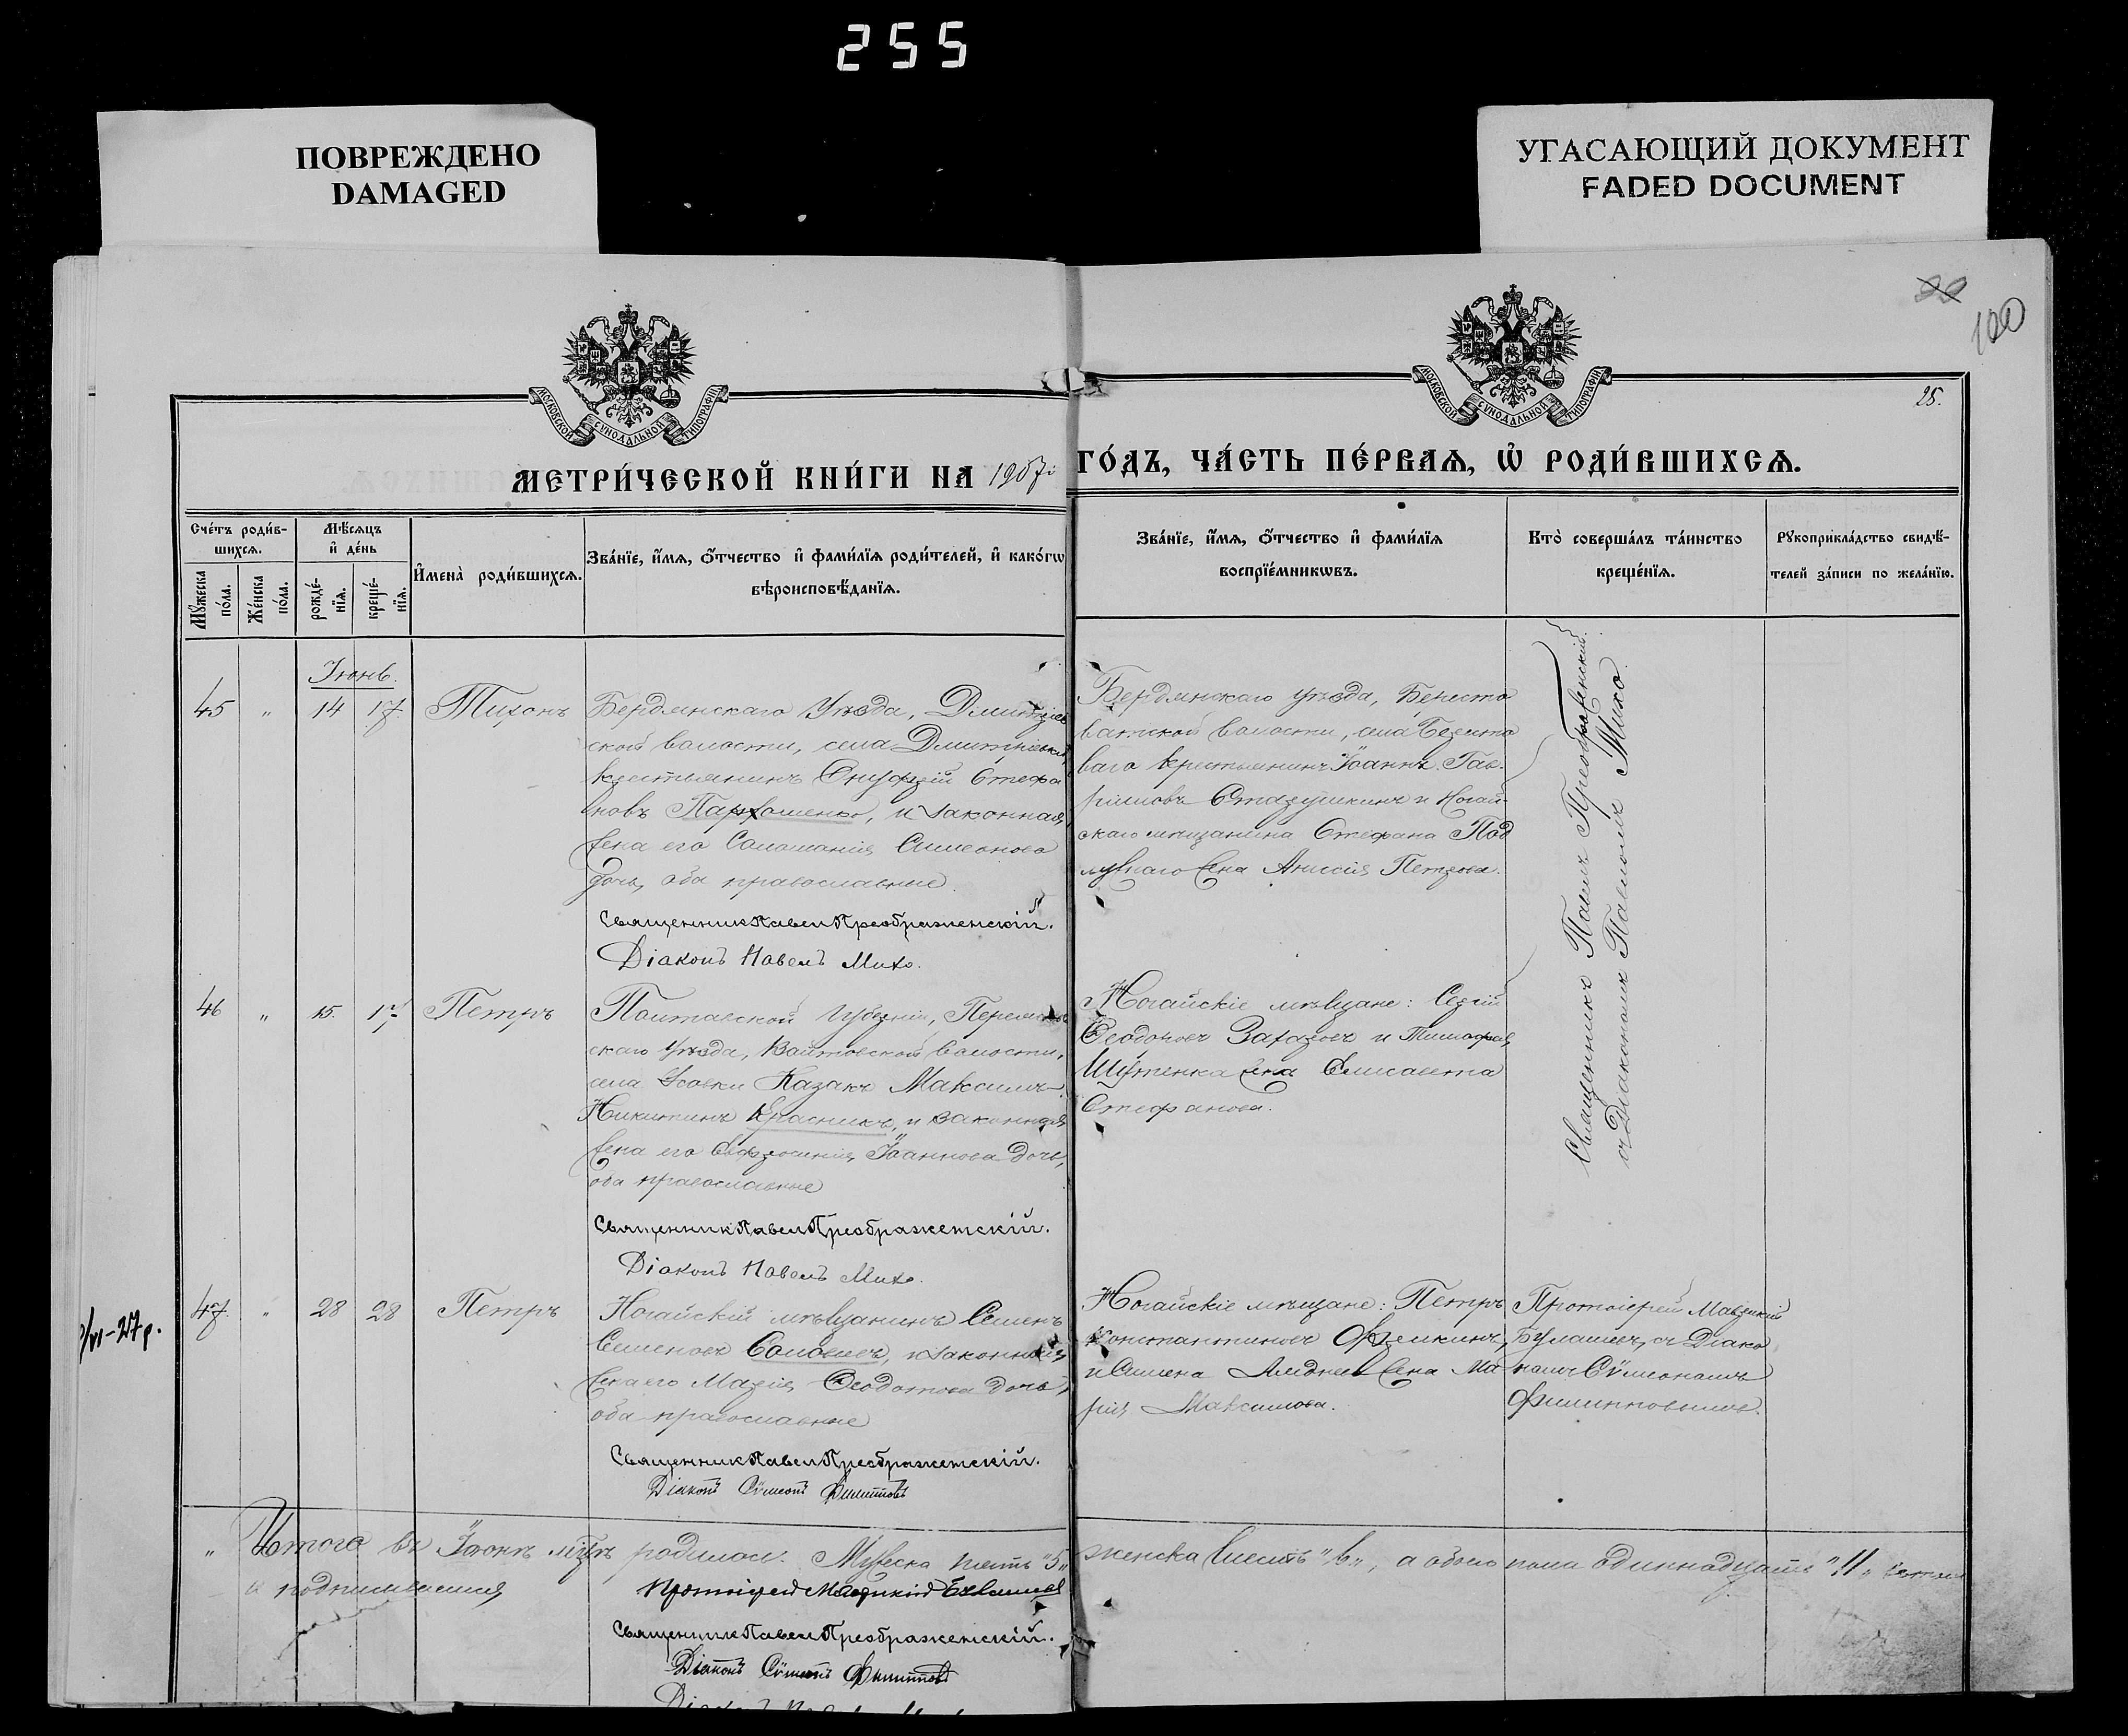 255
ПОВРЕЖДЕНО
DAMAGED
УГАСАЮЩИЙ ДОКУМЕНТ
FADED DOCUMENT
99
100
25.
МОСКОВСКОЙ СѴНОДАЛЬНОЙ ТИПОГРАФІИ
МОСКОВСКОЙ СѴНОДАЛЬНОЙ ТИПОГРАФІИ
МЕТРИ́ЧЕСКОЙ КНИ́ГИ НА 1907й ГО́ДЪ, ЧА́СТЬ ПЕ́РВАѦ, Ѡ҆ РОДИ́ВШИХСѦ.
Сче́тъ роди́в-
шихсѧ.
Мꙋ́жеска по́ла.
Же́нска по́ла.
Мѣ́сѧцъ
и҆ де́нь
рожде́-
нїѧ.
креще́-
нїѧ.
И҆мена̀ роди́вшихсѧ.
Зва́нїе, и҆́мѧ, ѻ҆́тчество и҆ фами́лїѧ роди́телей, и҆ како́гѡ
вѣроисповѣ́данїѧ.
Зва́нїе, и҆́мѧ, ѻ҆́тчество и҆ фами́лїѧ
воспрїе́мникѡвъ.
Кто̀ соверша́лъ та́инство
креще́нїѧ.
Рꙋкоприкла́дство свидѣ́-
телей за́писи по жела́нїю.
Іюнь.
45 " 14 17 Тихонъ
Бердянскаго Уѣзда, Дмитріев
ской волости, села Дмитріевки,
крестьянинъ Онуфрій Стефа
новъ Пархоменко, и законная
жена его Соломанія Симеонова
дочь, оба православные.
Священник Павел Преображенскій.
Діаконъ Павелъ Михо.
Бердянскаго уѣзда, Бересто
ватской волости, села Бересто
ваго крестьянинъ Іоаннъ Гав-
ріиловъ Старушкинъ и Ногай-
скаго мѣщанина Стефана Под
лужнаго жена Анисія Петрова.
Священникъ Павелъ Преображенскій
съ Діакономъ Павломъ Михо.
46 " 15. 17 Петръ
Полтавской губерніи, Переяслав
скаго уѣзда, Войтовской волости,
села Усовки Казакъ Максимъ
Никитинъ Красникъ, и законная
жена его Евфросинія Іоаннова дочь,
оба православные
Священник Павел Преображенскій.
Діаконъ Павелъ Михо.
Ногайскіе мѣщане: Сергій
Ѳеодоровъ Захаровъ и Тимофея
Шутенка жена Елисавета
Стефанова.
47. " 28 28 Петръ
Ногайскій мѣщанинъ Семенъ
Семеновъ Соловьевъ, и законная
жена его Марія Ѳеодотова дочь,
оба православные
Священник Павел Преображенскій.
Діаконъ Сѵмеонъ Филипповъ
Ногайскіе мѣщане: Петръ
Константиновъ
и Симена жена Ма
рія Максимова.
Протоіерей Маврикій
Булашевъ, съ Діако
номъ Сѵмеономъ
Филипповымъ.
" Итого въ Іюнѣ мѣсяцѣ родилось: Мужеска пять "5" женска шесть "6", а обоего пола одиннадцать "11"
и подписываемся
Протоіерей Маврикій Булашев
Священник Павел Преображенскій.
Діаконъ Сѵмеонъ Филипповъ